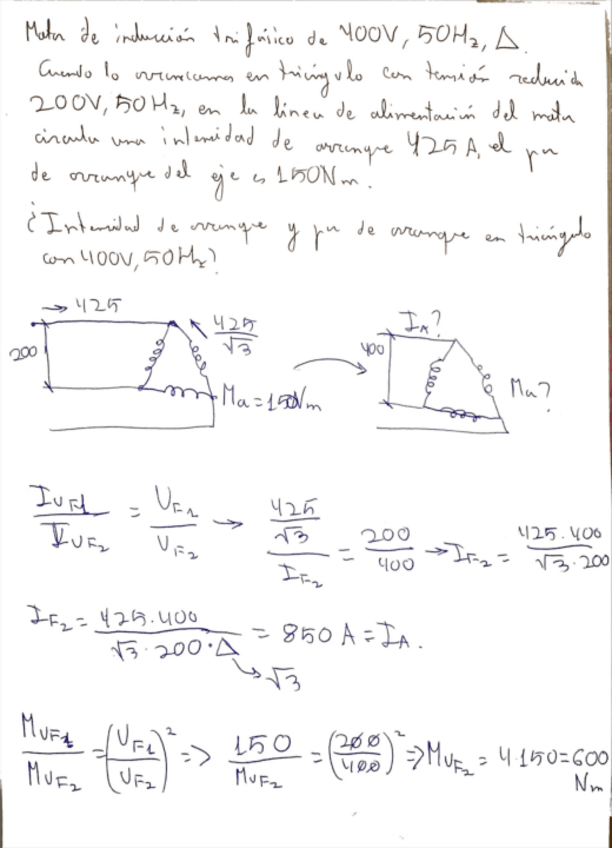 Motor de inducción trifásico de 400V, 50Hz, Δ.
Cuando lo arrancamos en triángulo con tensión reducida
200V, 50Hz, en la línea de alimentación del motor
circula una intensidad de arranque 425 A, el par
de arranque del eje es 150Nm.
¿Intensidad de arranque y par de arranque en triángulo
con 400V, 50Hz?
→ 425
425/√3
200
Ma = 150Nm
I_A?
400
Ma?
I_UF1/I_UF2 = U_F1/U_F2 → (425/√3)/I_F2 = 200/400 → I_F2 = 425.400/√3.200
I_F2 = 425.400/√3.200.Δ = 850 A = I_A.
↳ √3
M_UF1/M_UF2 = (U_F1/U_F2)² => 150/M_UF2 = (200/400)² => M_UF2 = 4.150 = 600
Nm